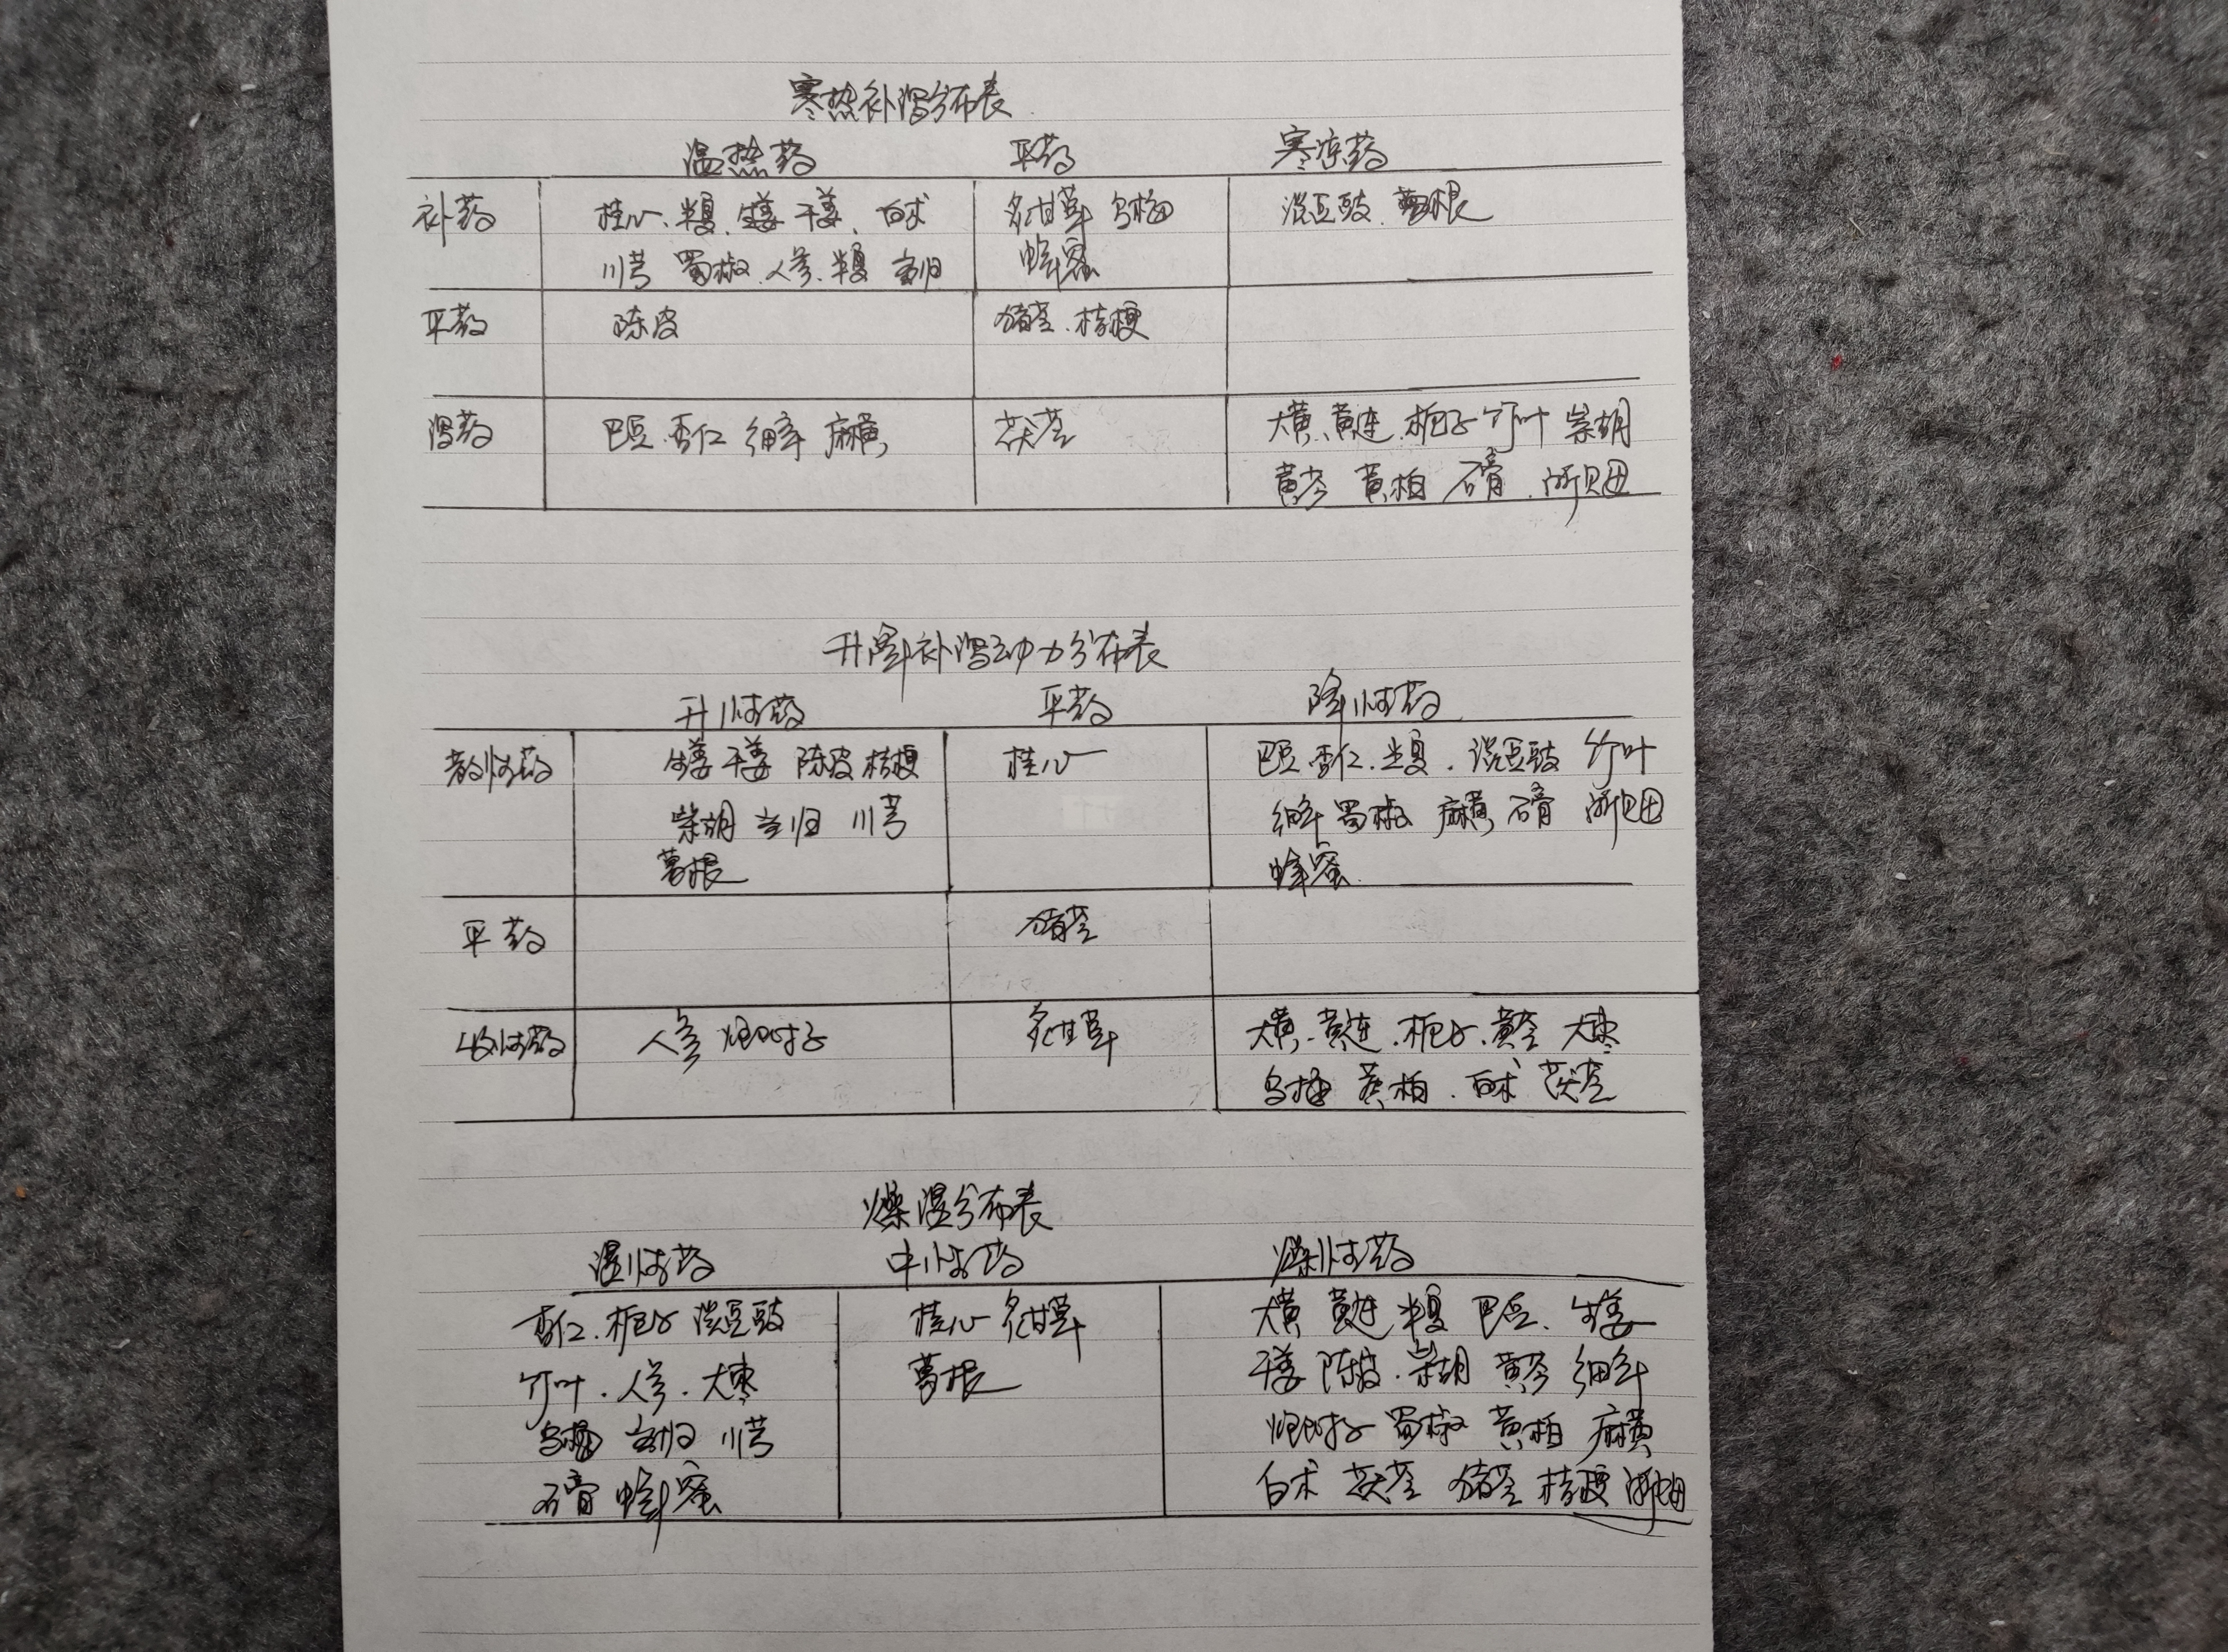 寒热补泻分布表
温热药 平药 寒凉药
补药 桂心、半夏、生姜 干姜、白术 炙甘草 乌梅 淡豆豉、葛根
川芎 蜀椒、人参、半夏 当归 蜂蜜
平药 陈皮 猪苓、桔梗
泻药 巴豆、杏仁 细辛 麻黄 茯苓 大黄、黄连、栀子 竹叶 柴胡
黄芩 黄柏 石膏、浙贝母
升降补泻动力分布表
升性药 平药 降性药
散性药 生姜 干姜 陈皮 桔梗 桂心 巴豆、杏仁、半夏、淡豆豉 竹叶
柴胡 当归 川芎 细辛 蜀椒 麻黄 石膏 浙贝母
葛根 蜂蜜
平药 猪苓
收性药 人参 炮附子 炙甘草 大黄、黄连、栀子、黄芩 大枣
乌梅 黄柏、白术 茯苓
燥湿分布表
湿性药 中性药 燥性药
杏仁、栀子 淡豆豉 桂心 炙甘草 大黄 黄连 半夏 巴豆、生姜
竹叶、人参、大枣 葛根 干姜 陈皮、柴胡 黄芩 细辛
乌梅 当归 川芎 炮附子 蜀椒 黄柏 麻黄
石膏 蜂蜜 白术 茯苓 猪苓 桔梗 浙贝母